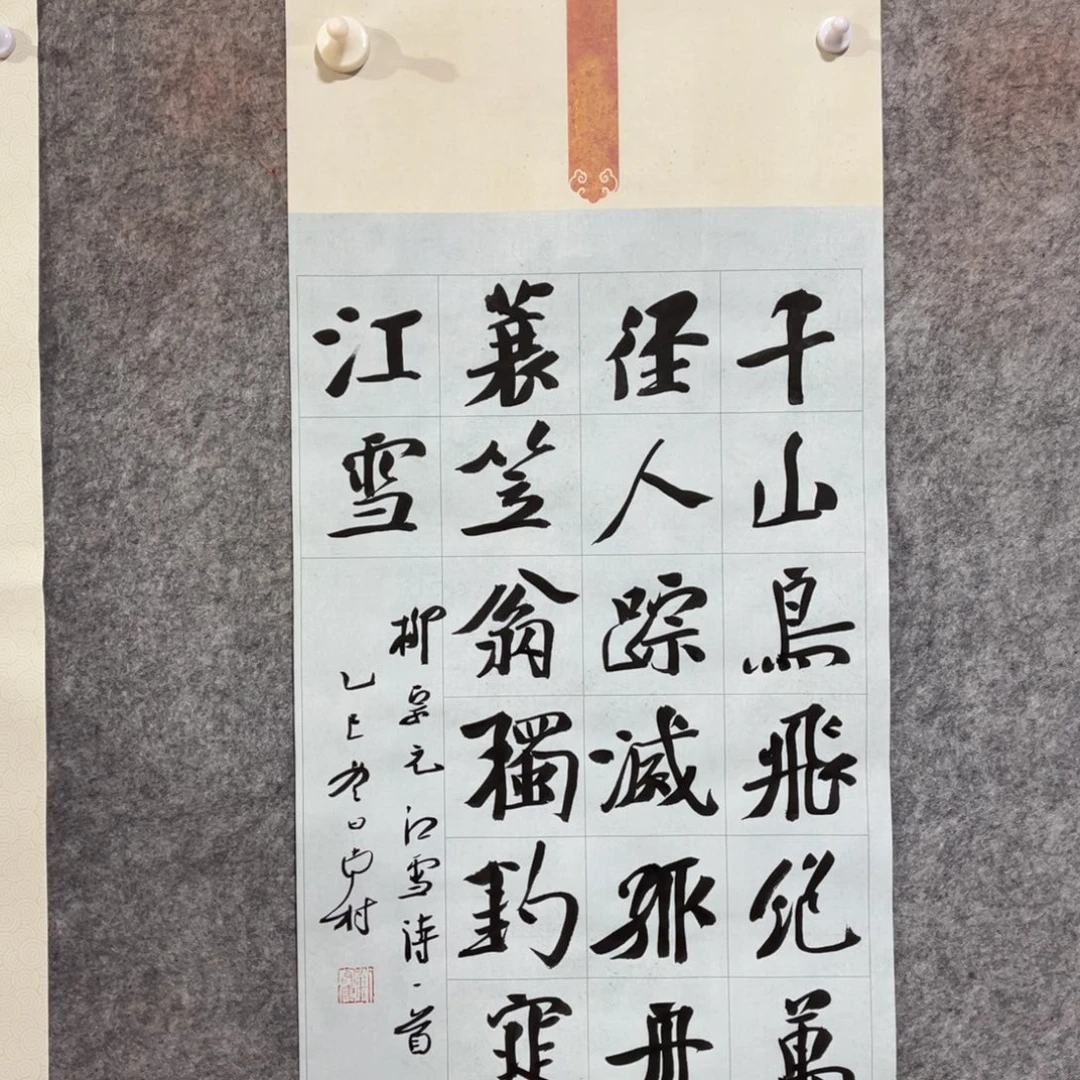 千山鳥飛絶萬
径人踪滅孤舟
蓑笠翁獨釣寒
江雪
柳宗元江雪詩一首
乙巳冬日村